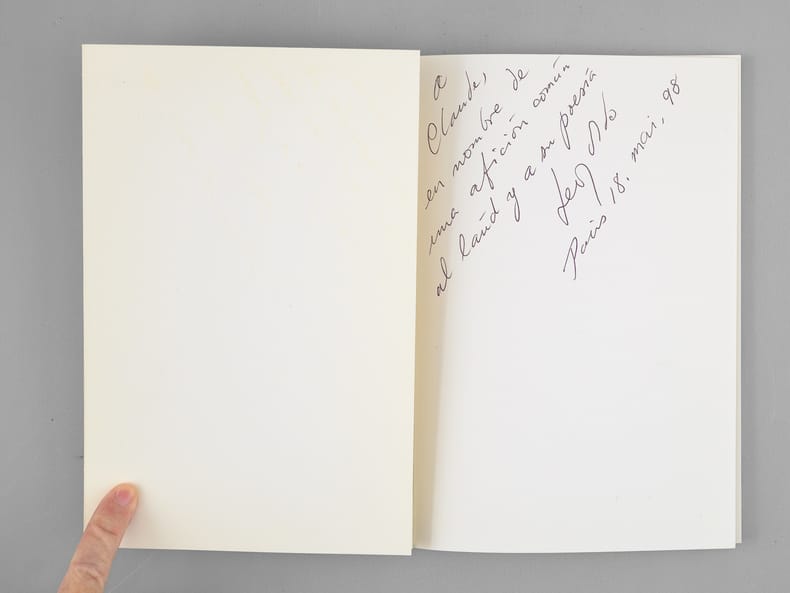 a
Claude,
en nombre de
una afición común
al laúd y a su poesía
Paris 18. mai, 98